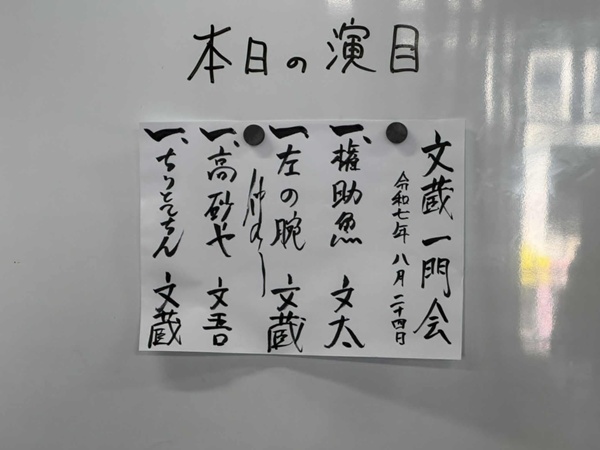 本日の演目
文蔵一門会
令和七年八月二十四日
一、権助魚 文太
一、左の腕 文蔵
仲入り
一、高砂や 文吾
一、ちりとてちん 文蔵